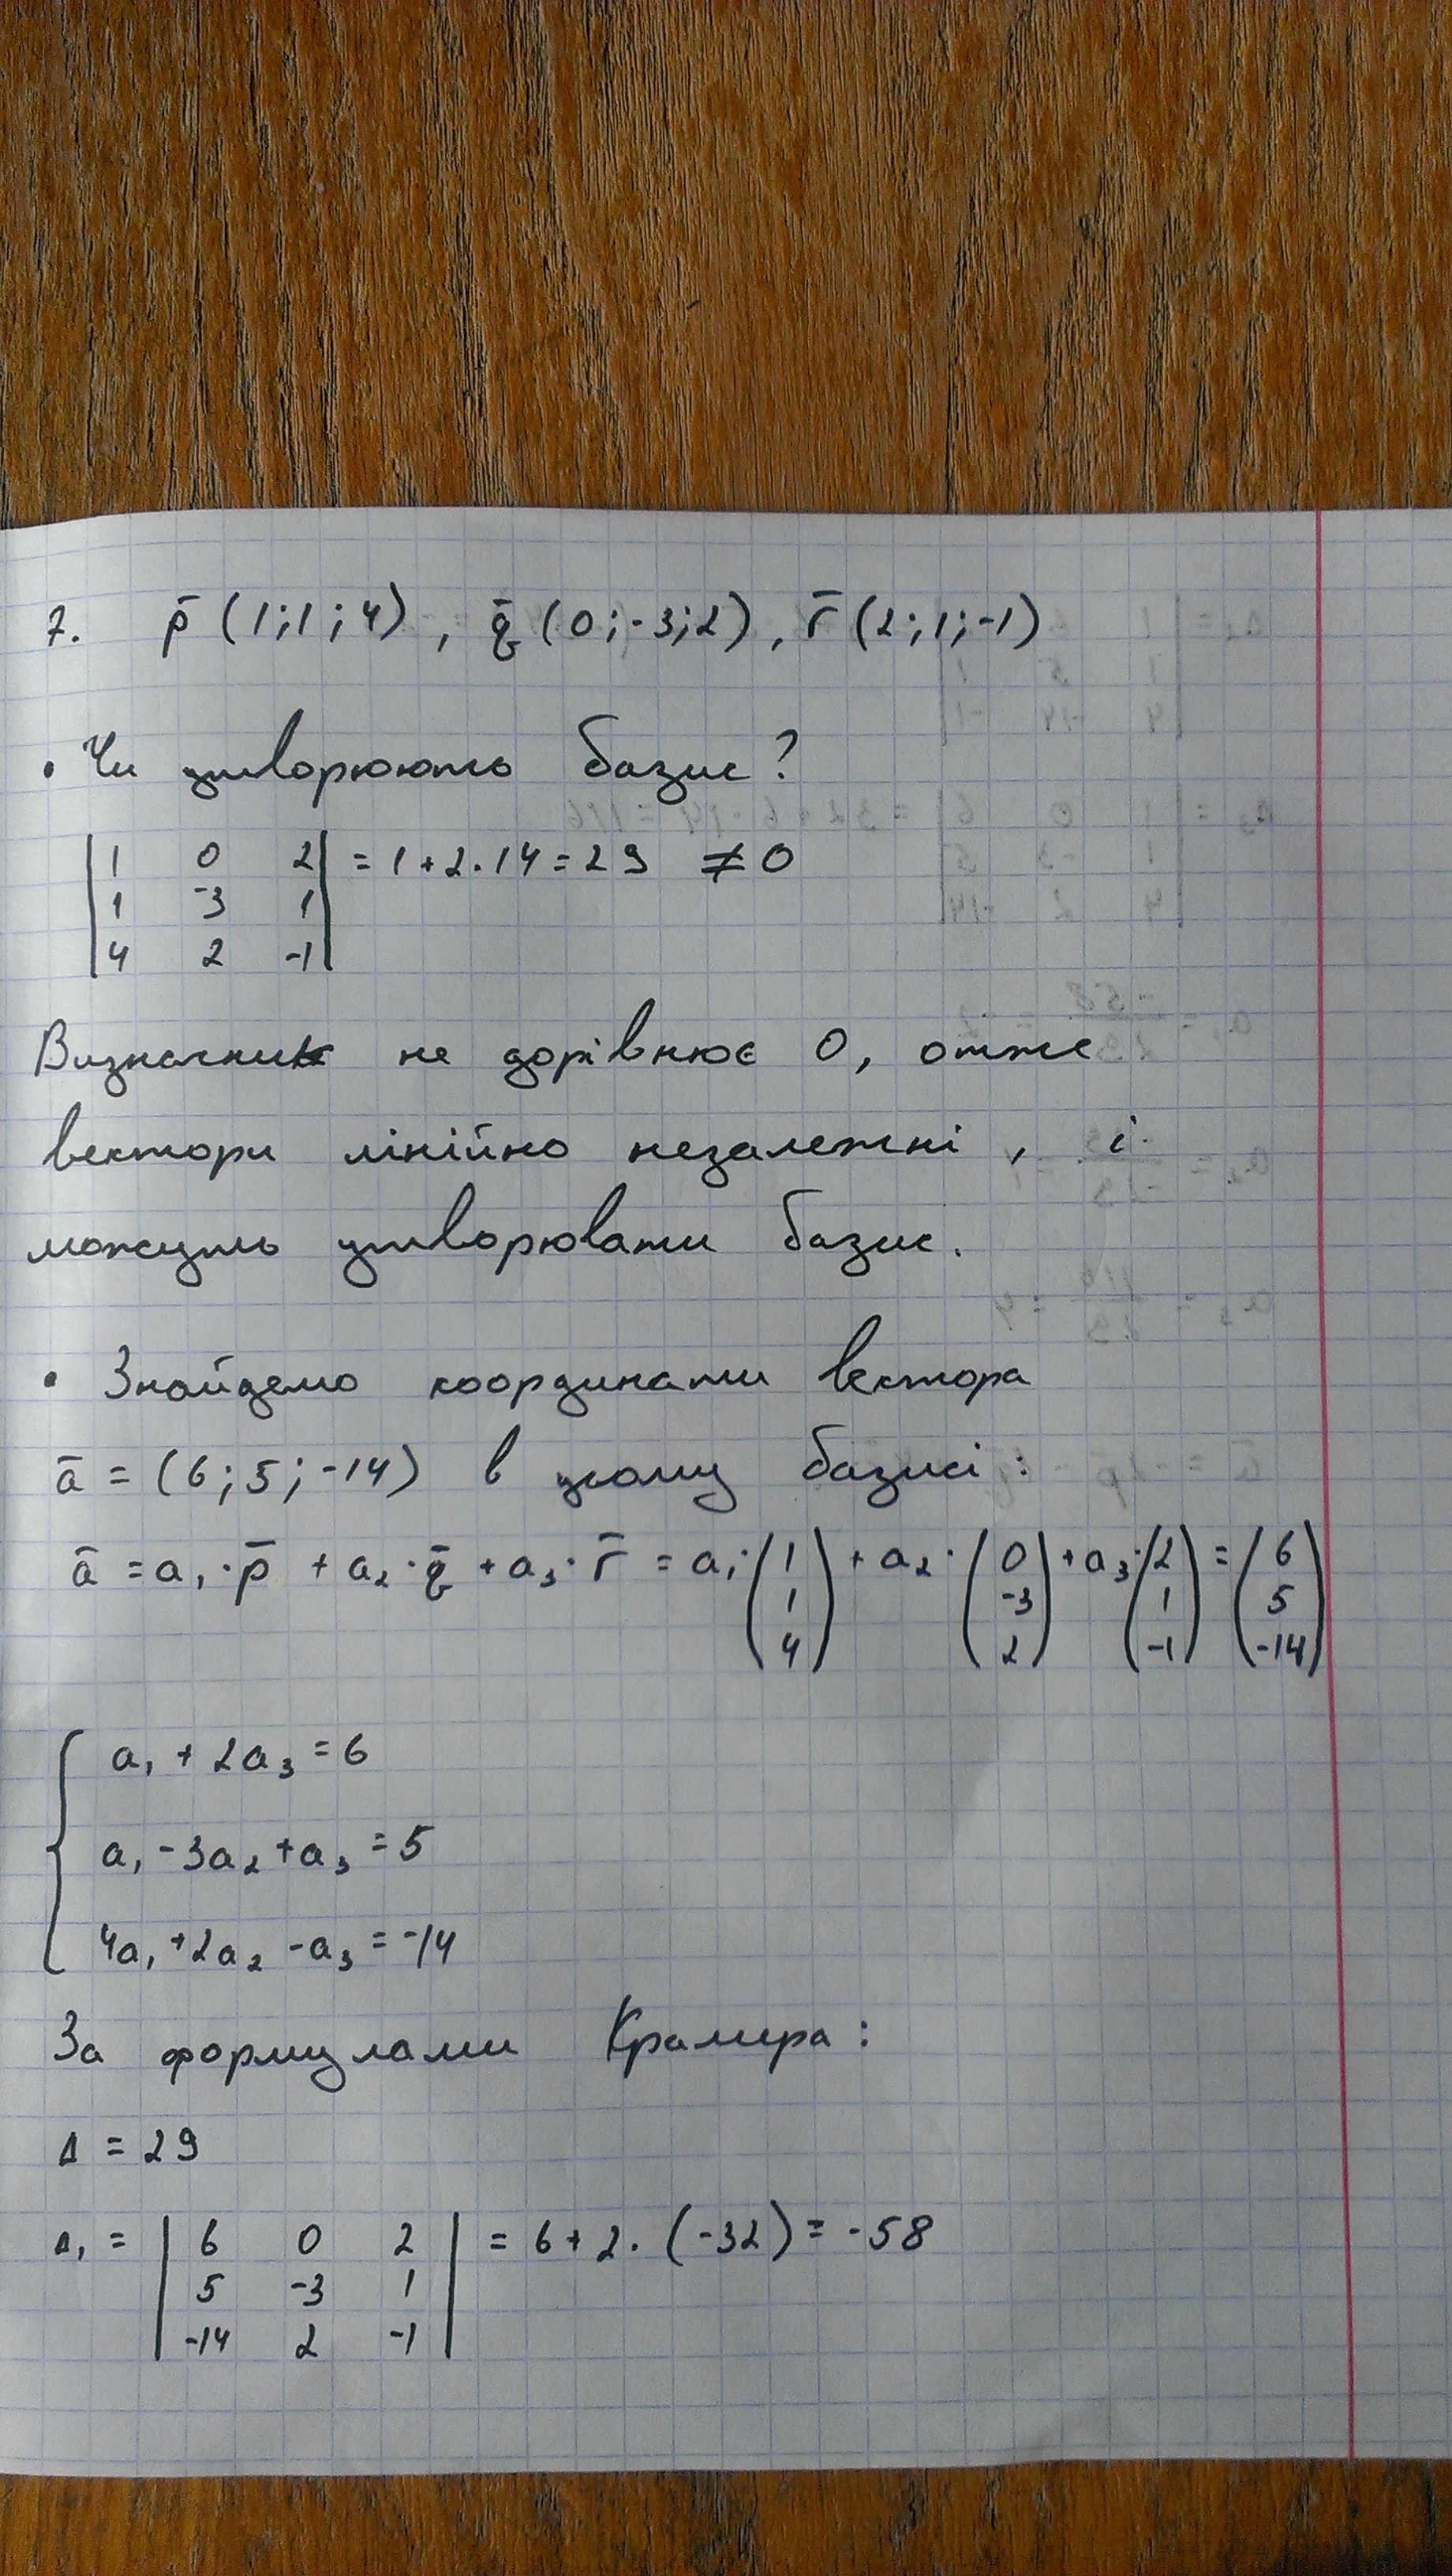 7. p̄ (1;1;4), q̄ (0;-3;2), r̄ (2;1;-1)
• Чи утворюють базис?
|1 0 2| = 1+2·14=29 ≠0
|1 -3 1|
|4 2 -1|
Визначник не дорівнює 0, отже
вектори лінійно незалежні, і
можуть утворювати базис.
• Знайдемо координати вектора
ā = (6;5;-14) в цьому базисі:
ā = a₁·p̄ + a₂·q̄ + a₃·r̄ = a₁·(1 1 4) + a₂·(0 -3 2) + a₃·(2 1 -1) = (6 5 -14)
a₁ + 2a₃ = 6
a₁ - 3a₂ + a₃ = 5
4a₁ + 2a₂ - a₃ = -14
За формулами Крамера:
Δ = 29
Δ₁ = |6 0 2| = 6+2·(-32) = -58
|5 -3 1|
|-14 2 -1|